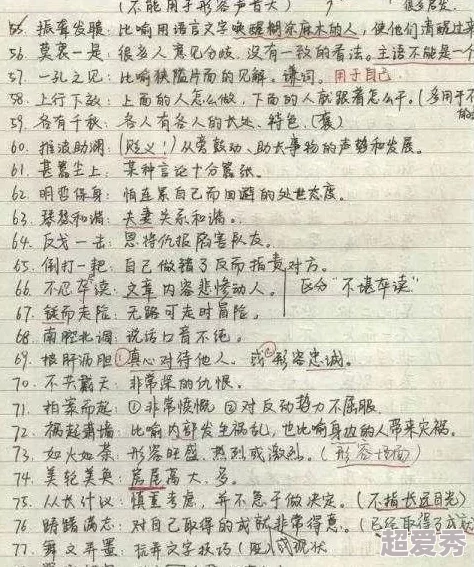 (不能用于形容声音大)
55. 振聋发聩：比喻用语言文字唤醒糊涂麻木的人，使他们清醒过来
56. 莫衷一是：很多人意见分歧，没有一致的看法。主语不能是一个
57. 一孔之见：比喻狭隘片面的见解。谦词。用于自己
58. 上行下效：上面的人怎么做，下面的人就跟着怎么干。(多用于不
59. 各有千秋：各人有各人的长处、特色。(褒)
60. 推波助澜：(贬义！)从旁鼓动、助长事物的声势和发展。
61. 甚嚣尘上：某种言论十分嚣张。
62. 明哲保身：怕连累自己而回避的处世态度。
63. 琴瑟和谐：夫妻关系和谐。
64. 反戈一击：恩将仇报陷害队友。
65. 倒打一耙：自己做错了反而指责对方。
66. 不忍卒读：文章内容悲惨动人。 区分"不堪卒读"
67. 铤而走险：无路可走时冒险。
68. 南腔北调：说话口音不纯。
69. 披肝沥胆①真心对待他人。或②形容忠诚。
70. 不共戴天：非常深的仇恨。
71. 拍案而起：①非常愤慨 ②对反动势力不屈服
72. 祸起萧墙：比喻内部发生祸乱，也比喻身边的人带来灾祸。
73. 如火如荼：形容旺盛、热烈或激烈。(形容情商)
74. 美轮美奂：房屋高大、多。
75. 从长计议：慎重考虑，并不急于做决定。(不指长远目光)
76. 踌躇满志：对自己取得的成就非常得意。(已经取得了成就
77. 舞文弄墨：玩弄文字技巧(贬) 或现状
超爱秀